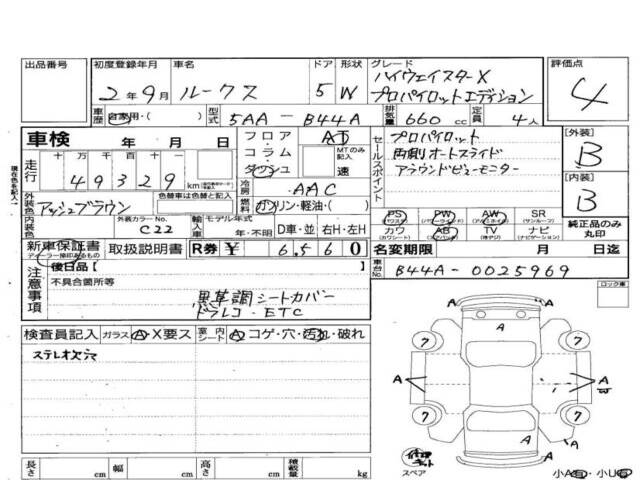 出品番号
初度登録年月 車名 ドア 形状 グレード 評価点
2年9月 ルークス 5 W ハイウェイスターX
プロパイロットエディション
4
車歴 自家用・( ) 型式 5AA - B44A 排気量 660 cc 定員 4人
車検 年 月 日
フロア AT
コラム MTのみ記入
ダッシュ 速
セールスポイント
プロパイロット
両側オートスライド
アラウンドビューモニター
[外装]
B
[内装]
B
走行 十 万 千 百 十 一
49329 km
冷房 AAC
外装色 アッシュブラウン 色替車は色替と記入
燃料 ガソリン・軽油・( )
内装色 外装カラーNo. C22 輸入車 モデル年式 年・不明 D車・並 右H・左H
PS PW AW SR
(パワステ) (パワーウィンド) (サンルーフ)
カワ AB TV ナビ
(カワシート) (エアバッグ) (ナビゲーション)
純正品のみ丸印
新車保証書 取扱説明書 R券 ¥ 6,560
ディーラー捺印あるもの
名変期限 月 日迄
車台No. B44A-0025969
後日品【 】
注意事項
不具合箇所等
黒革調シートカバー
ドラレコ・ETC
ロック車
検査員記入 ガラス A・X要ス 室内シート A コゲ・穴・汚れ・破れ
ステレオ欠穴
A
A
7 7
A A A
7 7
A A
修理キット
スペア
小A有・小U有
長さ cm 幅 cm 高さ cm 積載量 kg
現在色を記入